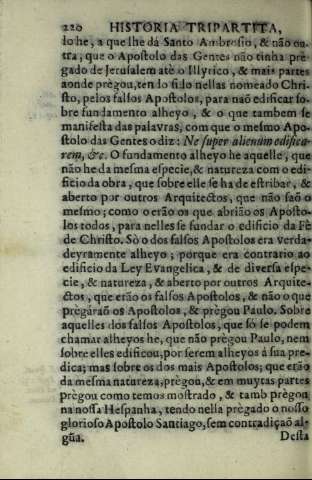 220 HISTORIA TRIPARTITA,
lo he, a que lhe dá Santo Ambrosio, & não ou-
tra, que o Apostolo das Gentes não tinha prè
gado de Jerusalem atè o Illyrico, & mais partes
aonde prègou, ten lo sido nellas nomeado Chri-
sto, pelos falsos Apostolos, para naõ edificar so-
bre fundamento alheyo, & o que tambem se
manifesta das palavras, com que o mesmo Apo-
stolo das Gentes o diz: Ne super alienum edifica-
rem, &c. O fundamento alheyo he aquelle, que
não he da mesma especie, & natureza com o edi-
ficio da obra, que sobre elle se ha de estribar, &
aberto por outros Arquitectos, que não saõ o
mesmo; como erão os que abrião os Aposto-
los todos, para nelles se fundar o edificio da Fè
de Christo. Sò o dos falsos Apostolos era verda-
deyramente alheyo; porque era contrario ao
edificio da Ley Evangelica, & de diversa espe-
cie, & natureza, & aberto por outros Arquite-
ctos, que erão os falsos Apostolos, & não o que
prègáraõ os Apostolos, & prègou Paulo. Sobre
aquelles dos falsos Apostolos, que só se podem
chamar alheyos he, que não prègou Paulo, nem
sobre elles edificou, por serem alheyos á sua pre-
dica; mas sobre os dos mais Apostolos; que erão
da mesma natureza, prègou, & em muytas partes
prègou como temos mostrado, & tamb prègou
na nossa Hespanha, tendo nella prègado o nosso
glorioso Apostolo Santiago, sem contradiçaõ al-
gũa. Desta